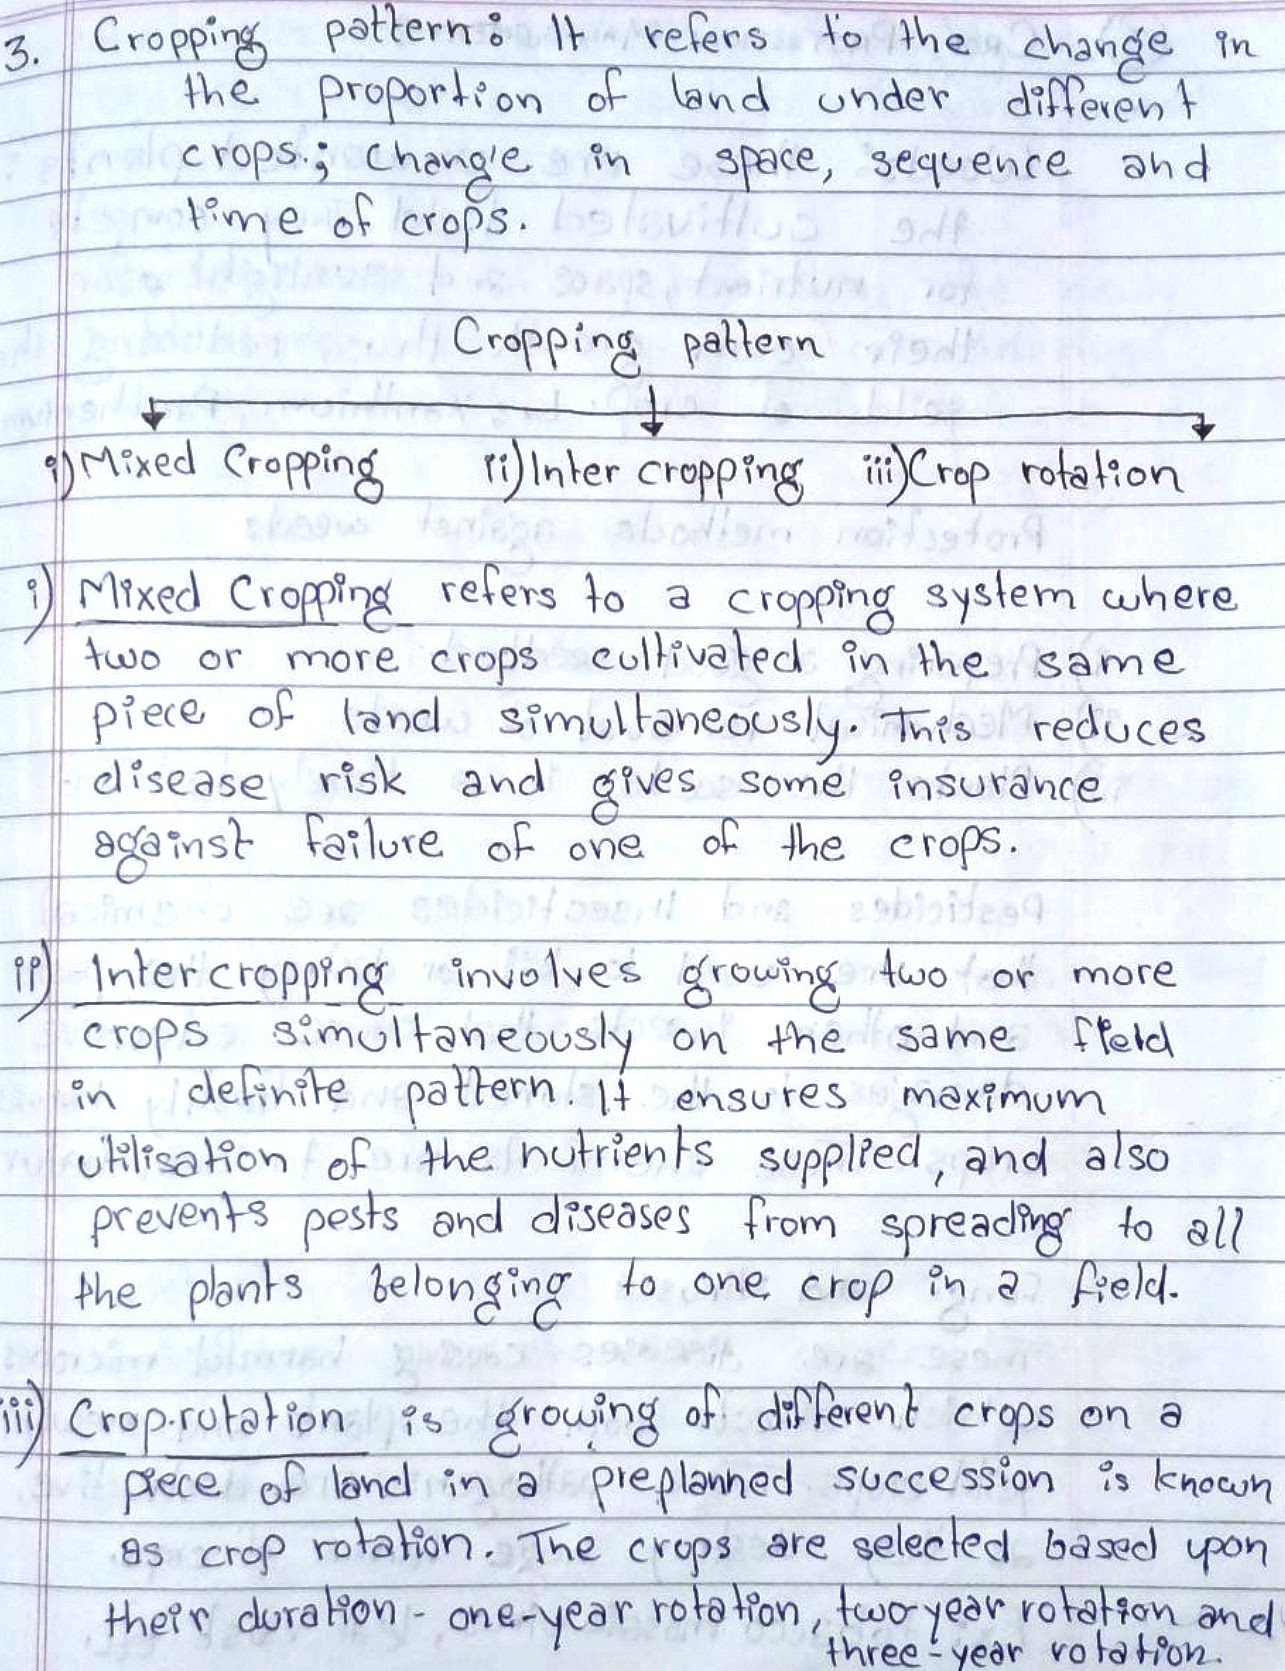 3. Cropping pattern: It refers to the change in
the proportion of land under different
crops.; change in space, sequence and
time of crops.
Cropping pattern
i) Mixed Cropping ii) Inter cropping iii) Crop rotation
i) Mixed Cropping refers to a cropping system where
two or more crops cultivated in the same
piece of land simultaneously. This reduces
disease risk and gives some insurance
against failure of one of the crops.
ii) Intercropping involves growing two or more
crops simultaneously on the same field
in definite pattern. It ensures maximum
utilisation of the nutrients supplied, and also
prevents pests and diseases from spreading to all
the plants belonging to one crop in a field.
iii) Crop-rotation is growing of different crops on a
piece of land in a preplanned succession is known
as crop rotation. The crops are selected based upon
their duration - one-year rotation, two year rotation and
three-year rotation.